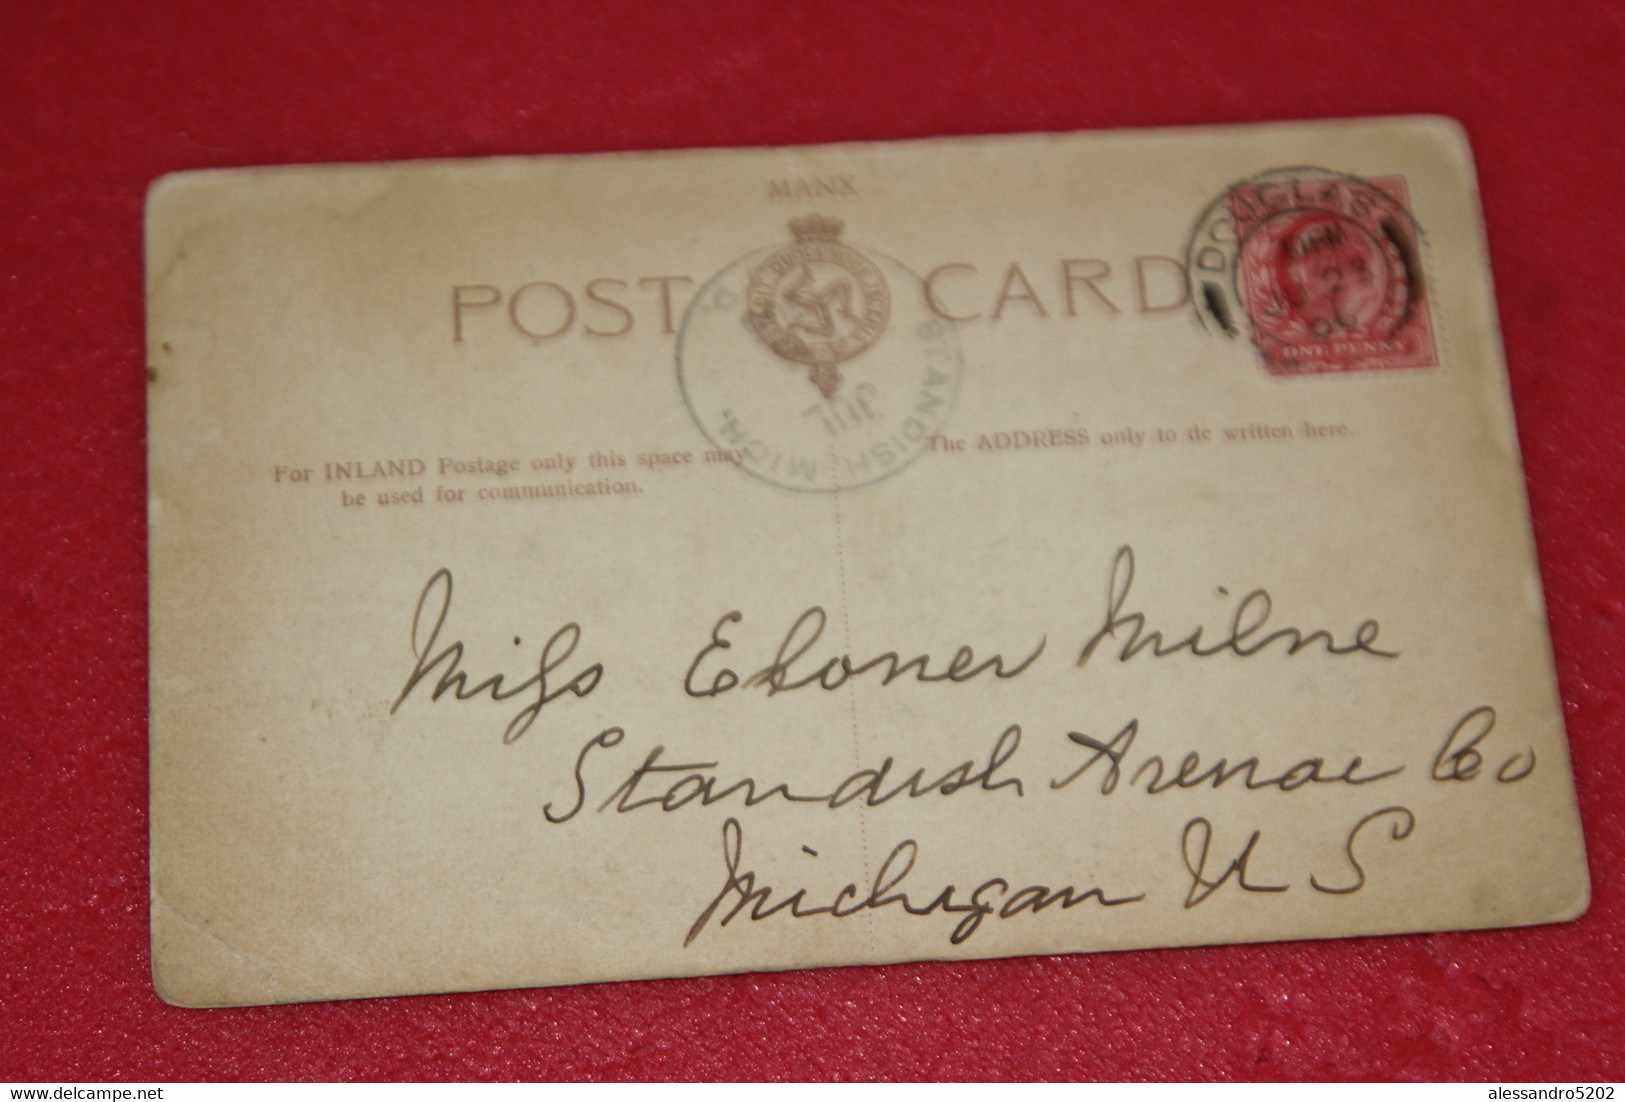 MANX
POST CARD
DOUGLAS
STANDISH MICH.
JUL
ONE PENNY
For INLAND Postage only this space may
be used for communication.
The ADDRESS only to de written here.
Miss Eloner Milne
Standish Arenac Co
Michigan U S
www.delcampe.net
alessandro5202